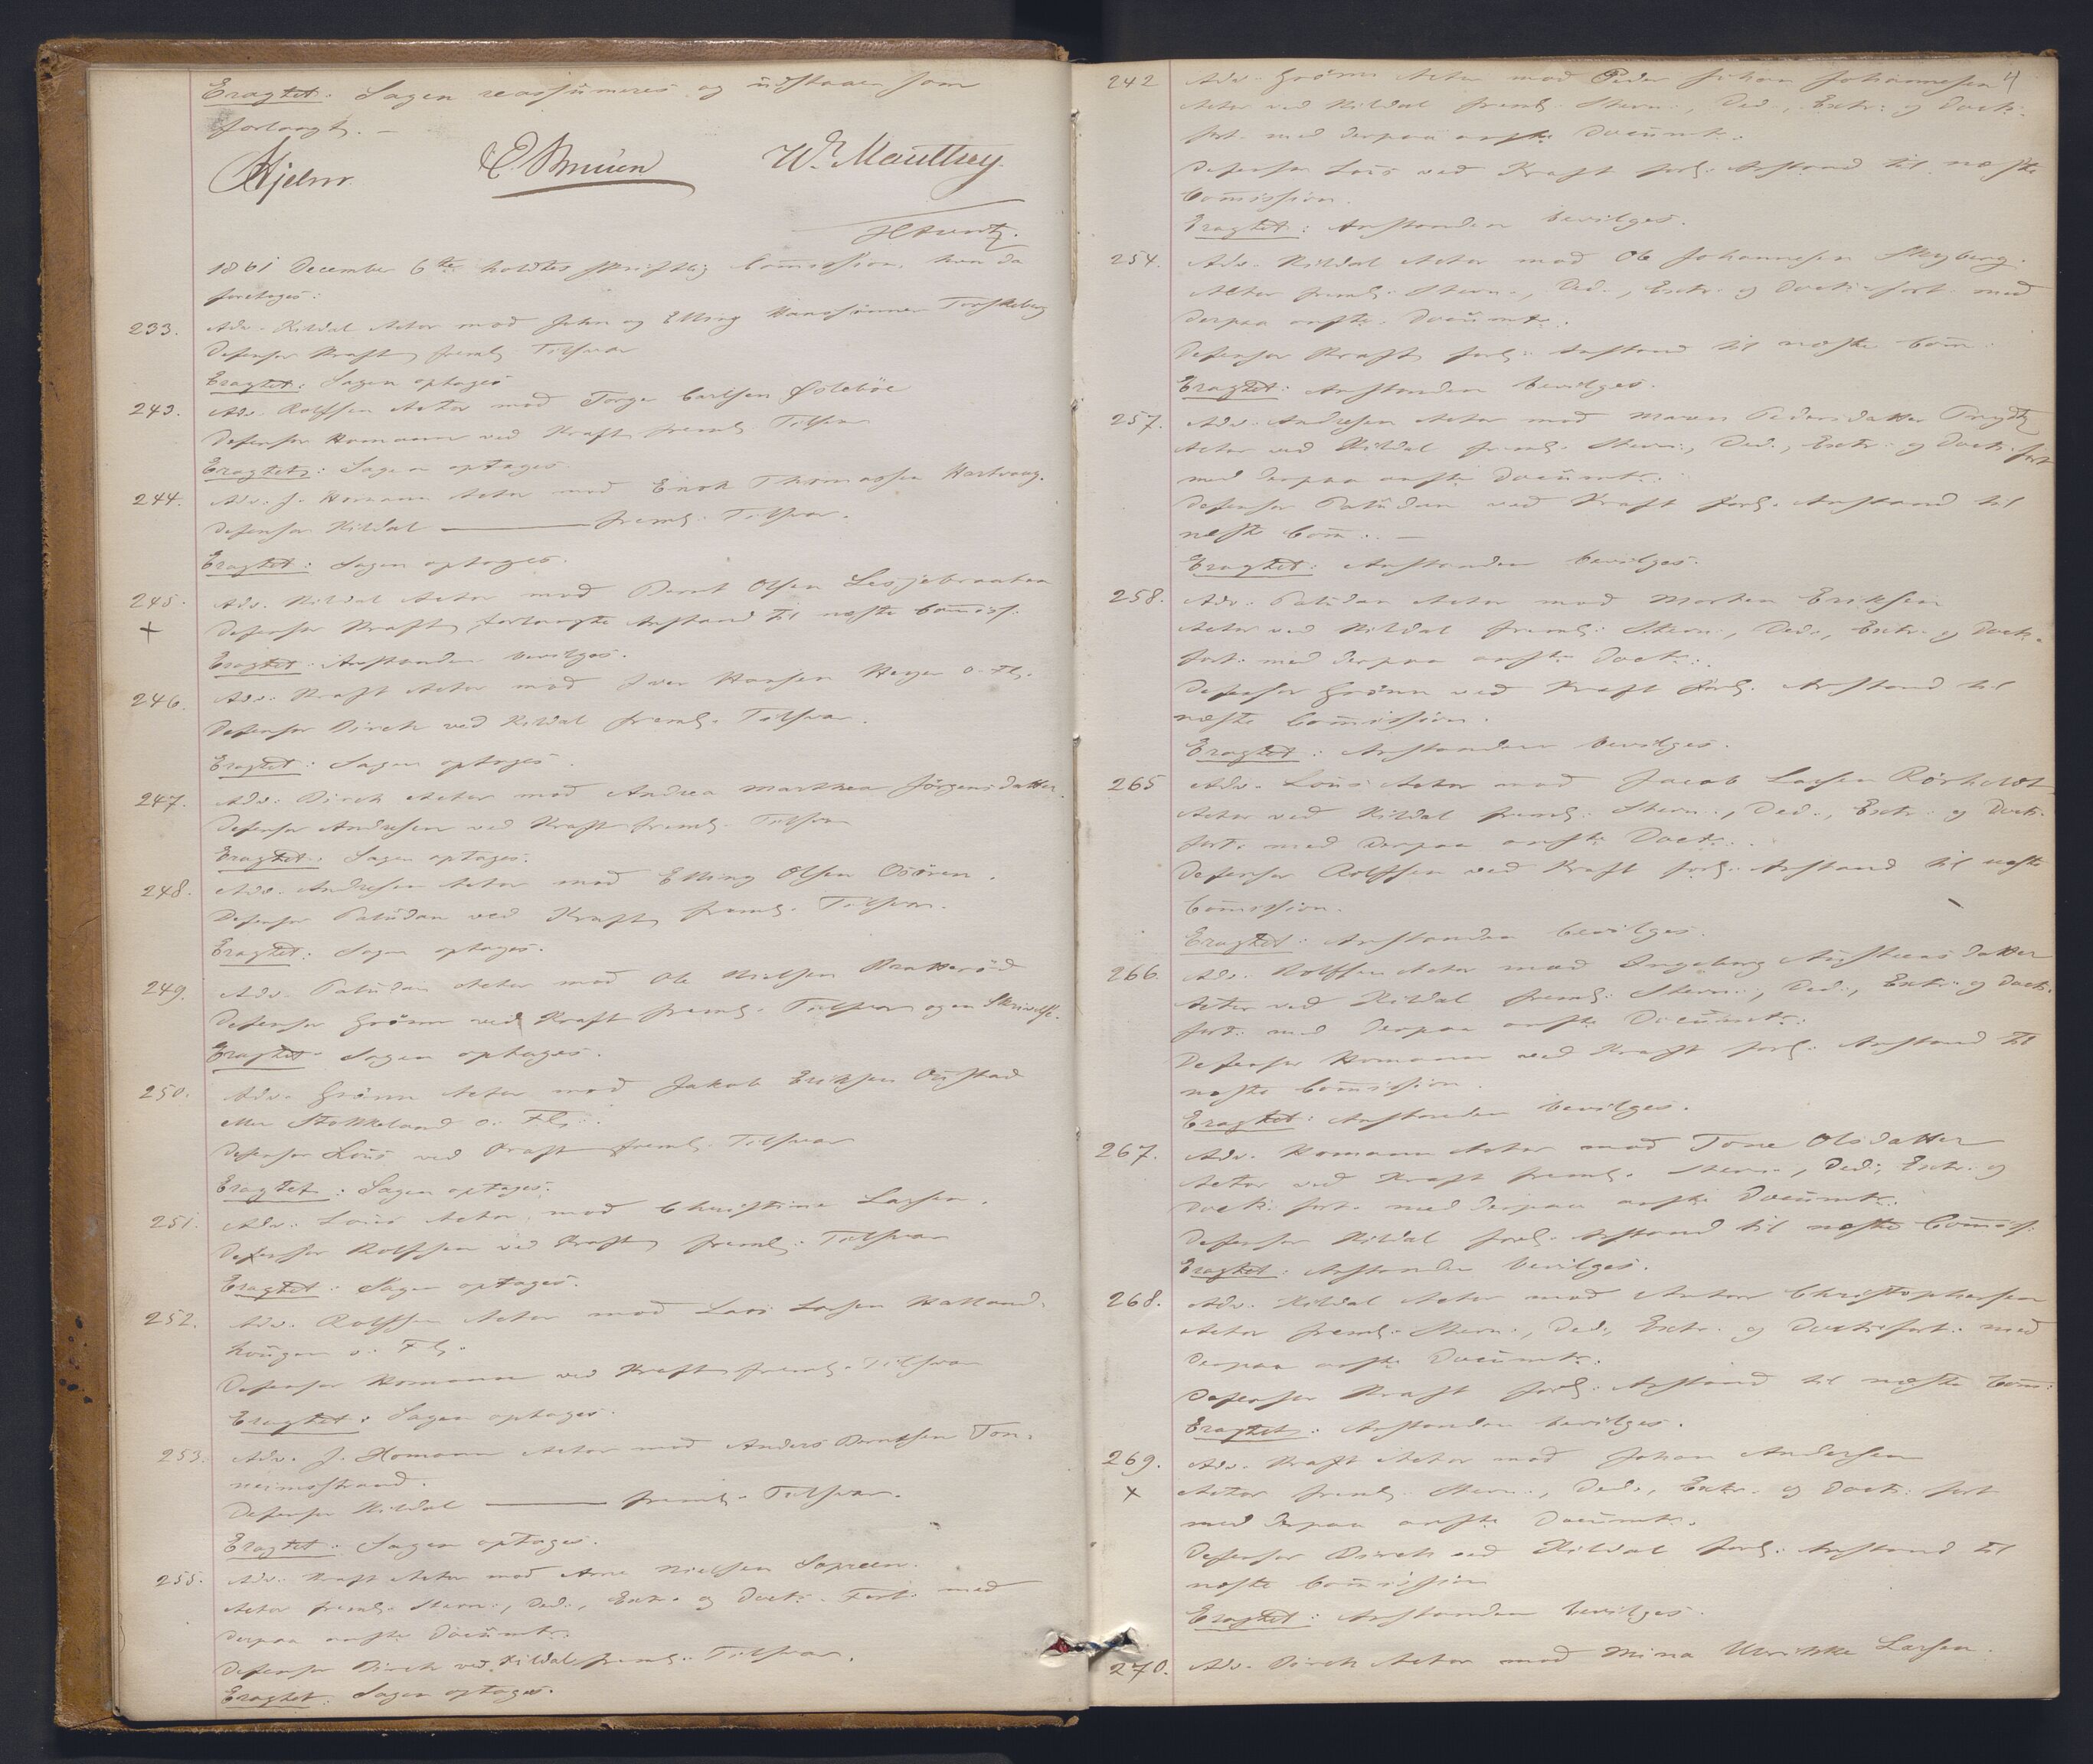 Eragtet: Sagen reassumeres og udstaaer som
forlangt. –
Hjelm. E. Bruun W. Maultzey.
1861 December 6te holdtes skriftlig Commission, hvor da
foretoges:
233. Adv. Kildal Actor mod John og Elling Hanssønner Torskeberg
Defensor Kraft freml. Tilsvar
Eragtet: Sagen optages
243. Adv. Rolfsen Actor mod Torger Carlsen Østebøe
Defensor Homann ved Kraft freml. Tilsvar
Eragtet: Sagen optages.
244. Adv. J. Homann Actor mod Enok Thomassen Hartvaag.
Defensor Kildal ——— freml. Tilsvar.
Eragtet: Sagen optages.
245. Adv. Kildal Actor mod Bernt Olsen Lesjebraaten
+ Defensor Kraft forlangte Anstand til næste Commiss:
Eragtet: Anstanden bevilges.
246. Adv. Kraft Actor mod Iver Hansen Hager o. Fl.
Defensor Dirch ved Kildal freml. Tilsvar.
Eragtet: Sagen optages.
247. Adv. Dirch Actor mod Andrea Marthea Jörgensdatter.
Defensor Andresen ved Kraft freml. Tilsvar
Eragtet: Sagen optages.
248. Adv. Andresen Actor mod Elling Olsen Osören.
Defensor Paludan ved Kraft freml. Tilsvar.
Eragtet: Sagen optages.
249. Adv. Paludan Actor mod Ole Nielsen Bratteröd
Defensor Grönn ved Kraft freml. Tilsvar og en Skrivelse.
Eragtet: Sagen optages.
250. Adv. Grönn Actor mod Jakob Eriksen Austad
eller Stokkeland o. Fl.
Defensor Lous ved Kraft freml. Tilsvar
Eragtet: Sagen optages.
251. Adv. Lous Actor mod Christine Larsen.
Defensor Rolfsen ved Kraft freml. Tilsvar
Eragtet: Sagen optages.
252. Adv. Rolfsen Actor mod Lars Larsen Hatland-
hougen o. Fl.
Defensor Homann ved Kraft freml. Tilsvar
Eragtet: Sagen optages.
253. Adv. J. Homann Actor mod Anders Berntsen Ton-
neimsstrand.
Defensor Kildal ——— freml. Tilsvar.
Eragtet: Sagen optages.
255. Adv. Kraft Actor mod Arne Nielsen
Actor freml. Stevn:, Ded:, Extr. og Doct: Fort: med
derpaa anfte Documtr.
Defensor Dirch ved Kildal freml. Tilsvar.
Eragtet: Sagen optages.
4
242 Adv. Grönn Actor mod Peder Johan Johannesen
Actor ved Kildal freml. Stevn:, Ded:, Extr: og Doct:
fort. med derpaa anfte Documtr.
Defensor Lous ved Kraft forl: Anstand til næste
Commission.
Eragtet: Anstanden bevilges.
254. Adv. Kildal Actor mod Ole Johannesen Skyberg.
Actor freml. Stevn:, Ded:, Extr: og Doct: fort: med
derpaa anfte Documtr.
Defensor Kraft forl: Anstand til næste Comm:
Eragtet: Anstanden bevilges.
257. Adv. Andresen Actor mod Maren Pedersdatter Prydtz
Actor ved Kildal freml. Stevn:, Ded:, Extr: og Doct: fort
med derpaa anfte Documtr.
Defensor Paludan ved Kraft forl. Anstand til
næste Comm: –
Eragtet: Anstanden bevilges.
258. Adv. Paludan Actor mod Morten Eriksen
Actor ved Kildal freml: Stevn:, Ded:, Extr: og Doct:
fort: med derpaa anfte Doct:
Defensor Grönn ved Kraft forl. Anstand til
næste Commission.
Eragtet: Anstanden bevilges.
265 Adv. Lous Actor mod Jacob Larsen Rörholdt
Actor ved Kildal freml: Stevn:, Ded:, Extr: og Doct:
fort: med derpaa anfte Doct:
Defensor Rolfsen ved Kraft forl: Anstand til næste
Commission.
Eragtet: Anstanden bevilges.
266. Adv. Rolfsen Actor mod Ingeborg Austensdatter
Actor ved Kildal freml: Stevn:, Ded:, Extr: og Doct:
fort: med derpaa anfte Documtr:
Defensor Homann ved Kraft forl: Anstand til
næste Commission.
Eragtet: Anstanden bevilges.
267. Adv. Homann Actor mod Tone Olsdatter
Actor ved Kraft freml. Stevn:, Ded:, Extr: og
Doct: fort. med derpaa anfte Documtr.
Defensor Kildal forl. Anstand til næste Commiss:
Eragtet: Anstanden bevilges.
268. Adv. Kildal Actor mod Anton Christophersen
Actor freml. Stevn:, Ded:, Extr: og Doct: fort: med
derpaa anfte Documtr.
Defensor Kraft forl: Anstand til næste Comm:
Eragtet: Anstanden bevilges.
269. Adv. Kraft Actor mod Johan Andersen
x Actor freml. Stevn:, Ded:, Extr. og Doct: fort
med derpaa anfte Documtr.
Defensor Dirch ved Kildal forl: Anstand til
næste Commission
Eragtet: Anstanden bevilges.
270. Adv. Dirch Actor mod Mina Ulrikke Larsen.